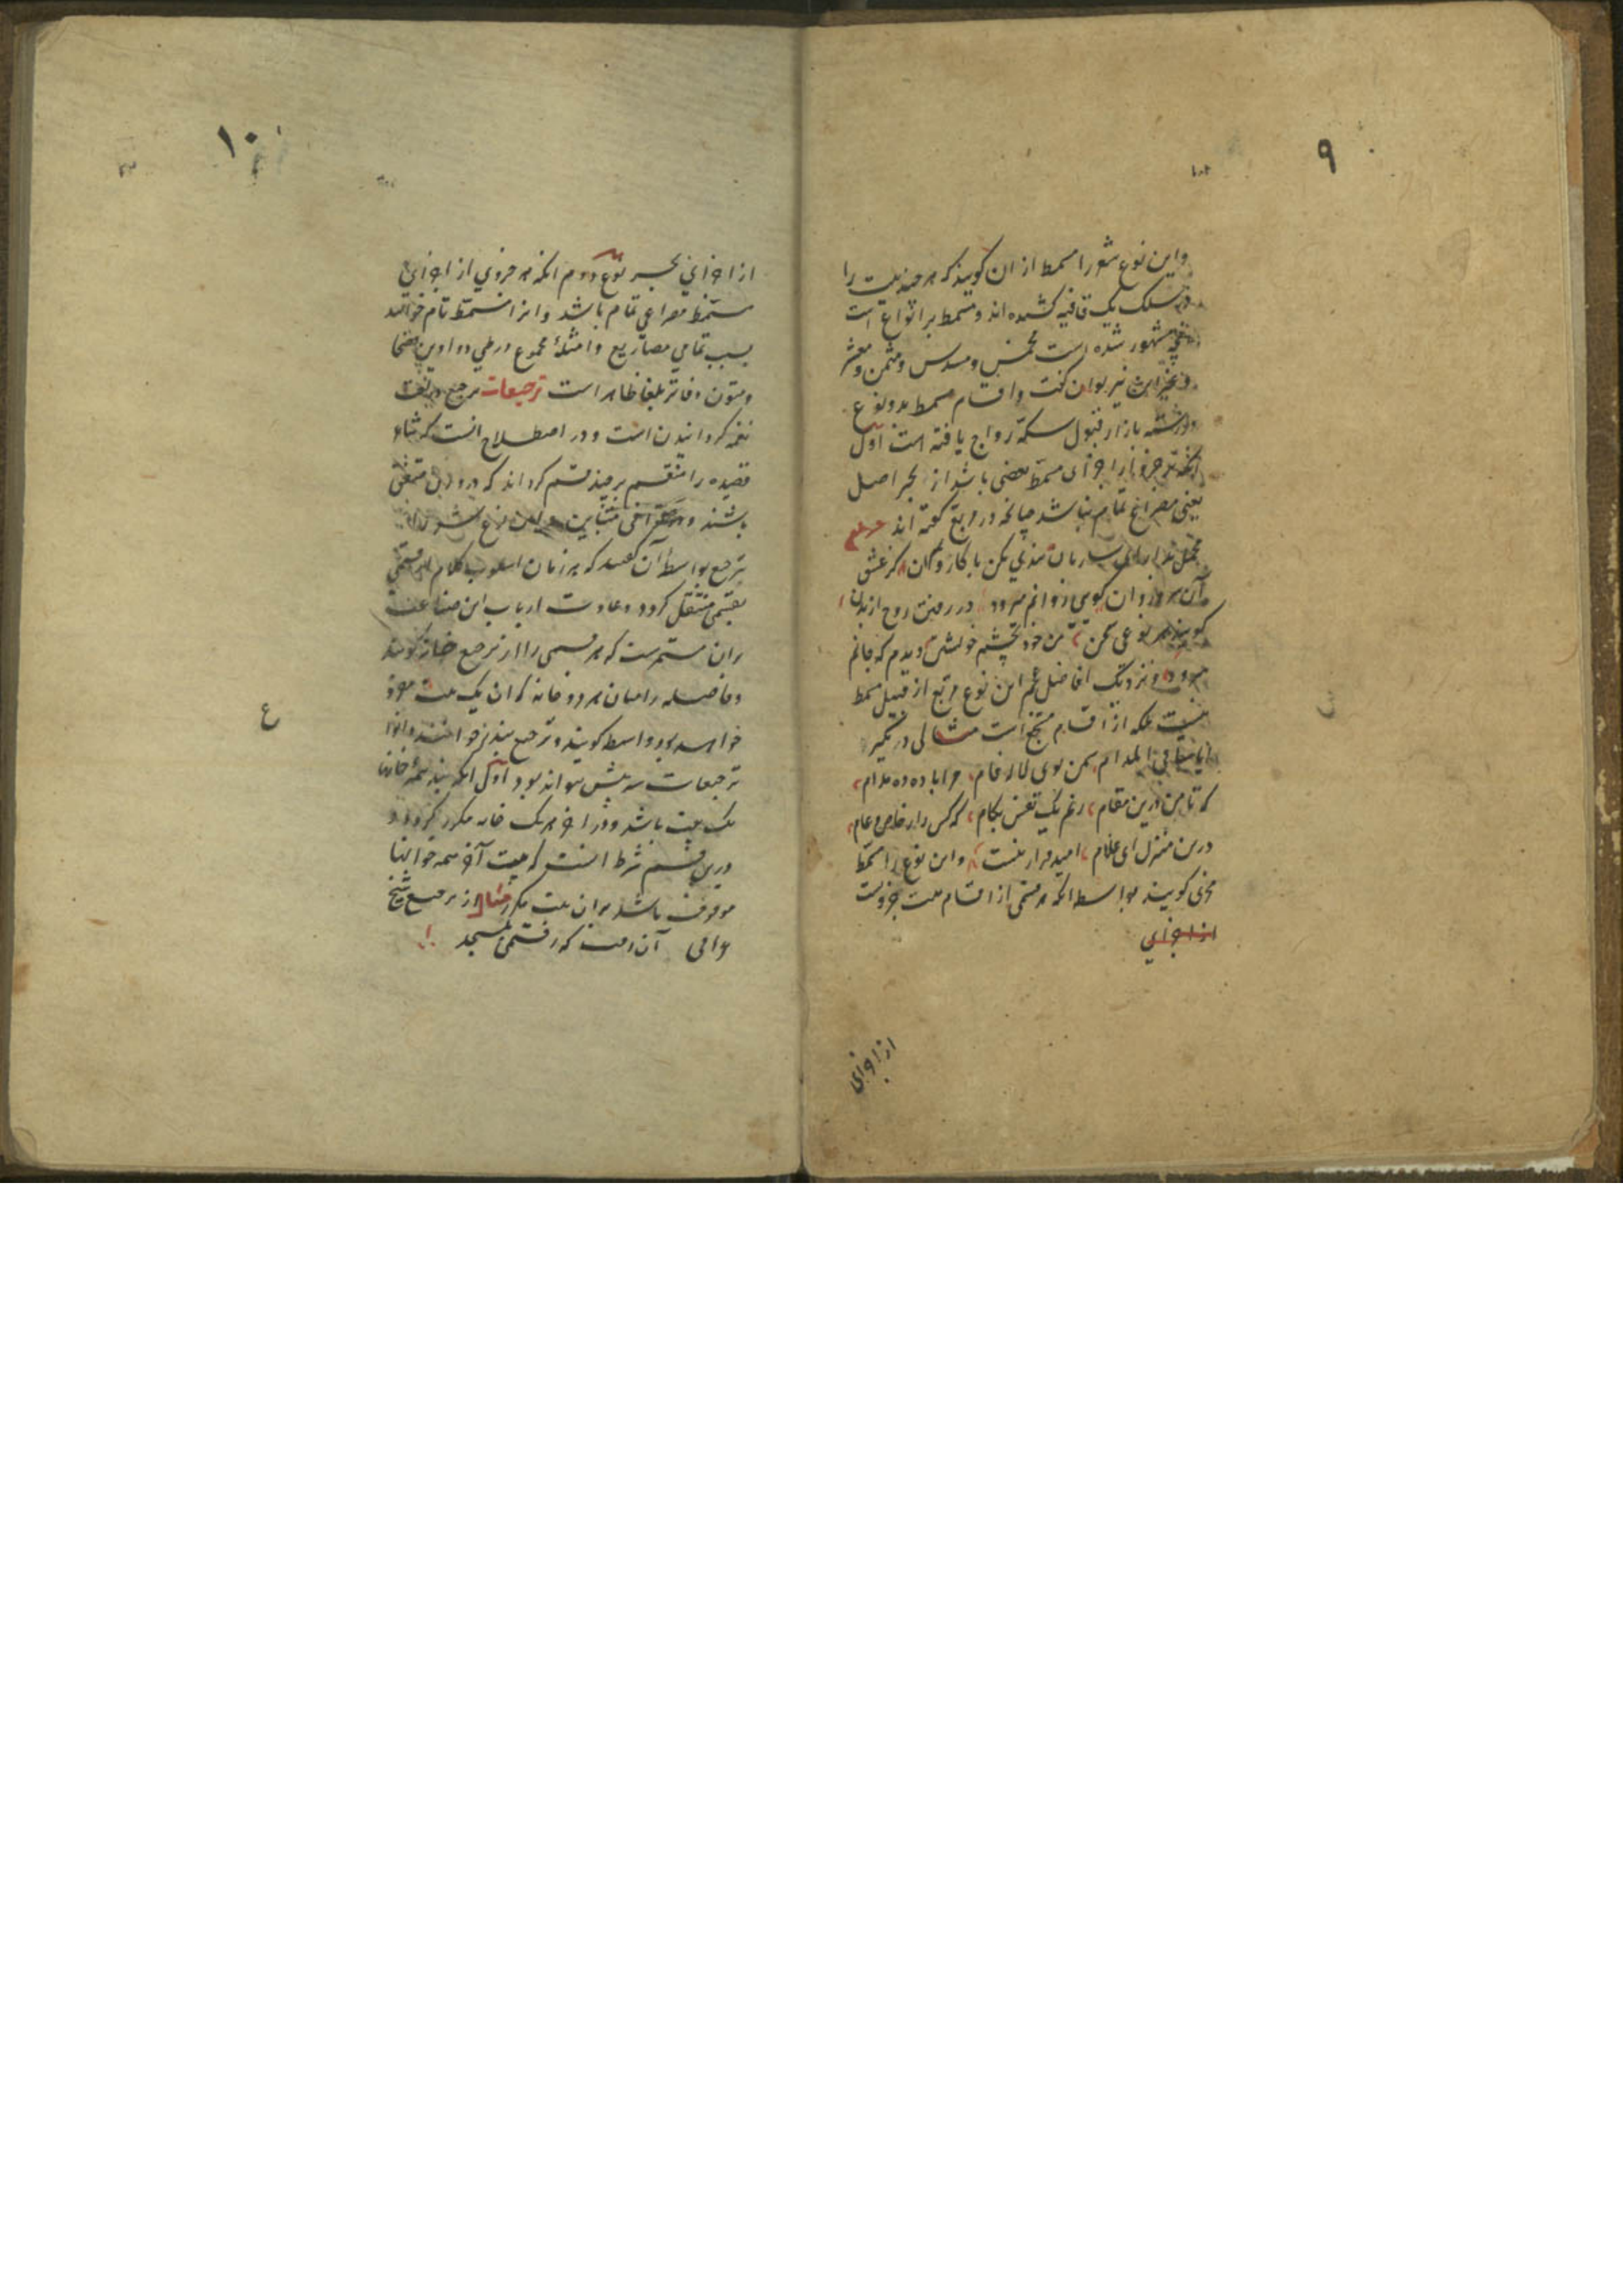 ۹
واین نوع شعر را مسمط ازان کویند که هر چند بیت را
در سلک یک قافیه کشیده اند و مسمط بر انواع است
مشهور شده است مخمس و مسدس و مثمن و معشر
و غیر این نیز توان کفت و اقسام مسمط بدو نوع
بازار قبول سکه رواج یافته است اول
آنکه هر جزو از اجزای مسمط بعضی باشد از بحر اصل
یعنی مصراع تمام نباشد چنانچه در مربع کفته اند
ساربان تندی مکن با کاروان کز عشق
آن سرو روان کویی روانم میرود در رفتن روح از بدن
کویند هر نوعی سخن من خود بچشم خویشتن دیدم که جانم
میرود و نزدیک افاضل عجم این نوع مربع از قبیل مسمط
نیست بلکه از اقسام مسجع است مثالی دیکر
ایا ساقی المدام سمن بوی لاله فام مرا باده ده مدام
که تا من درین مقام زنم یک نفس بکام که کس را ز خاص و عام
درین منزل ای غلام امید قرار نیست و این نوع را مسمط
مجزی کویند بواسطه آنکه هر قسمی از اقسام بیت جزویست
از اجزای
از اجزای
۱۰
از اجزای بحر نوع دوم آنکه هر جزوی از اجزای
مسمط مصراعی تمام باشد و انرا مسمط تام خوانند
بسبب تمامی مصاریع و امثلهٔ مجموع در طی دواوین فصحا
و متون دفاتر بلغا ظاهر است ترجیعات ترجیع در لغت
نغمه کردانیدن است و در اصطلاح آنست که شاعر
قصیده را منقسم بر چند قسم کرداند که در وزن متفق
باشند و در قوافی متباین و این نوع شعر را
ترجیع بواسطه آن کفتند که هر زمان اسلوب کلام از قسمی
بقسمی منتقل کردد و عادت ارباب این صناعت
بران مستمرست که هر قسمی را از ترجیع خانه کویند
و فاصله را میان هر دو خانه که ان یک بیت مفرد
خواهد بود واسطه کویند و ترجیع بند نیز خوانند و انواع
ترجیعات سه بیش نتواند بود اول آنکه بند همهٔ خانها
یک بیت باشد و در آخر هر یک خانه مکرر کردد و
درین قسم شرط است که بیت آخر همه خوانها
موقوف باشد بران بیت مکرر مثال از ترجیع شیخ
عراقی آن رفت که رفتمی بمسجد
ع